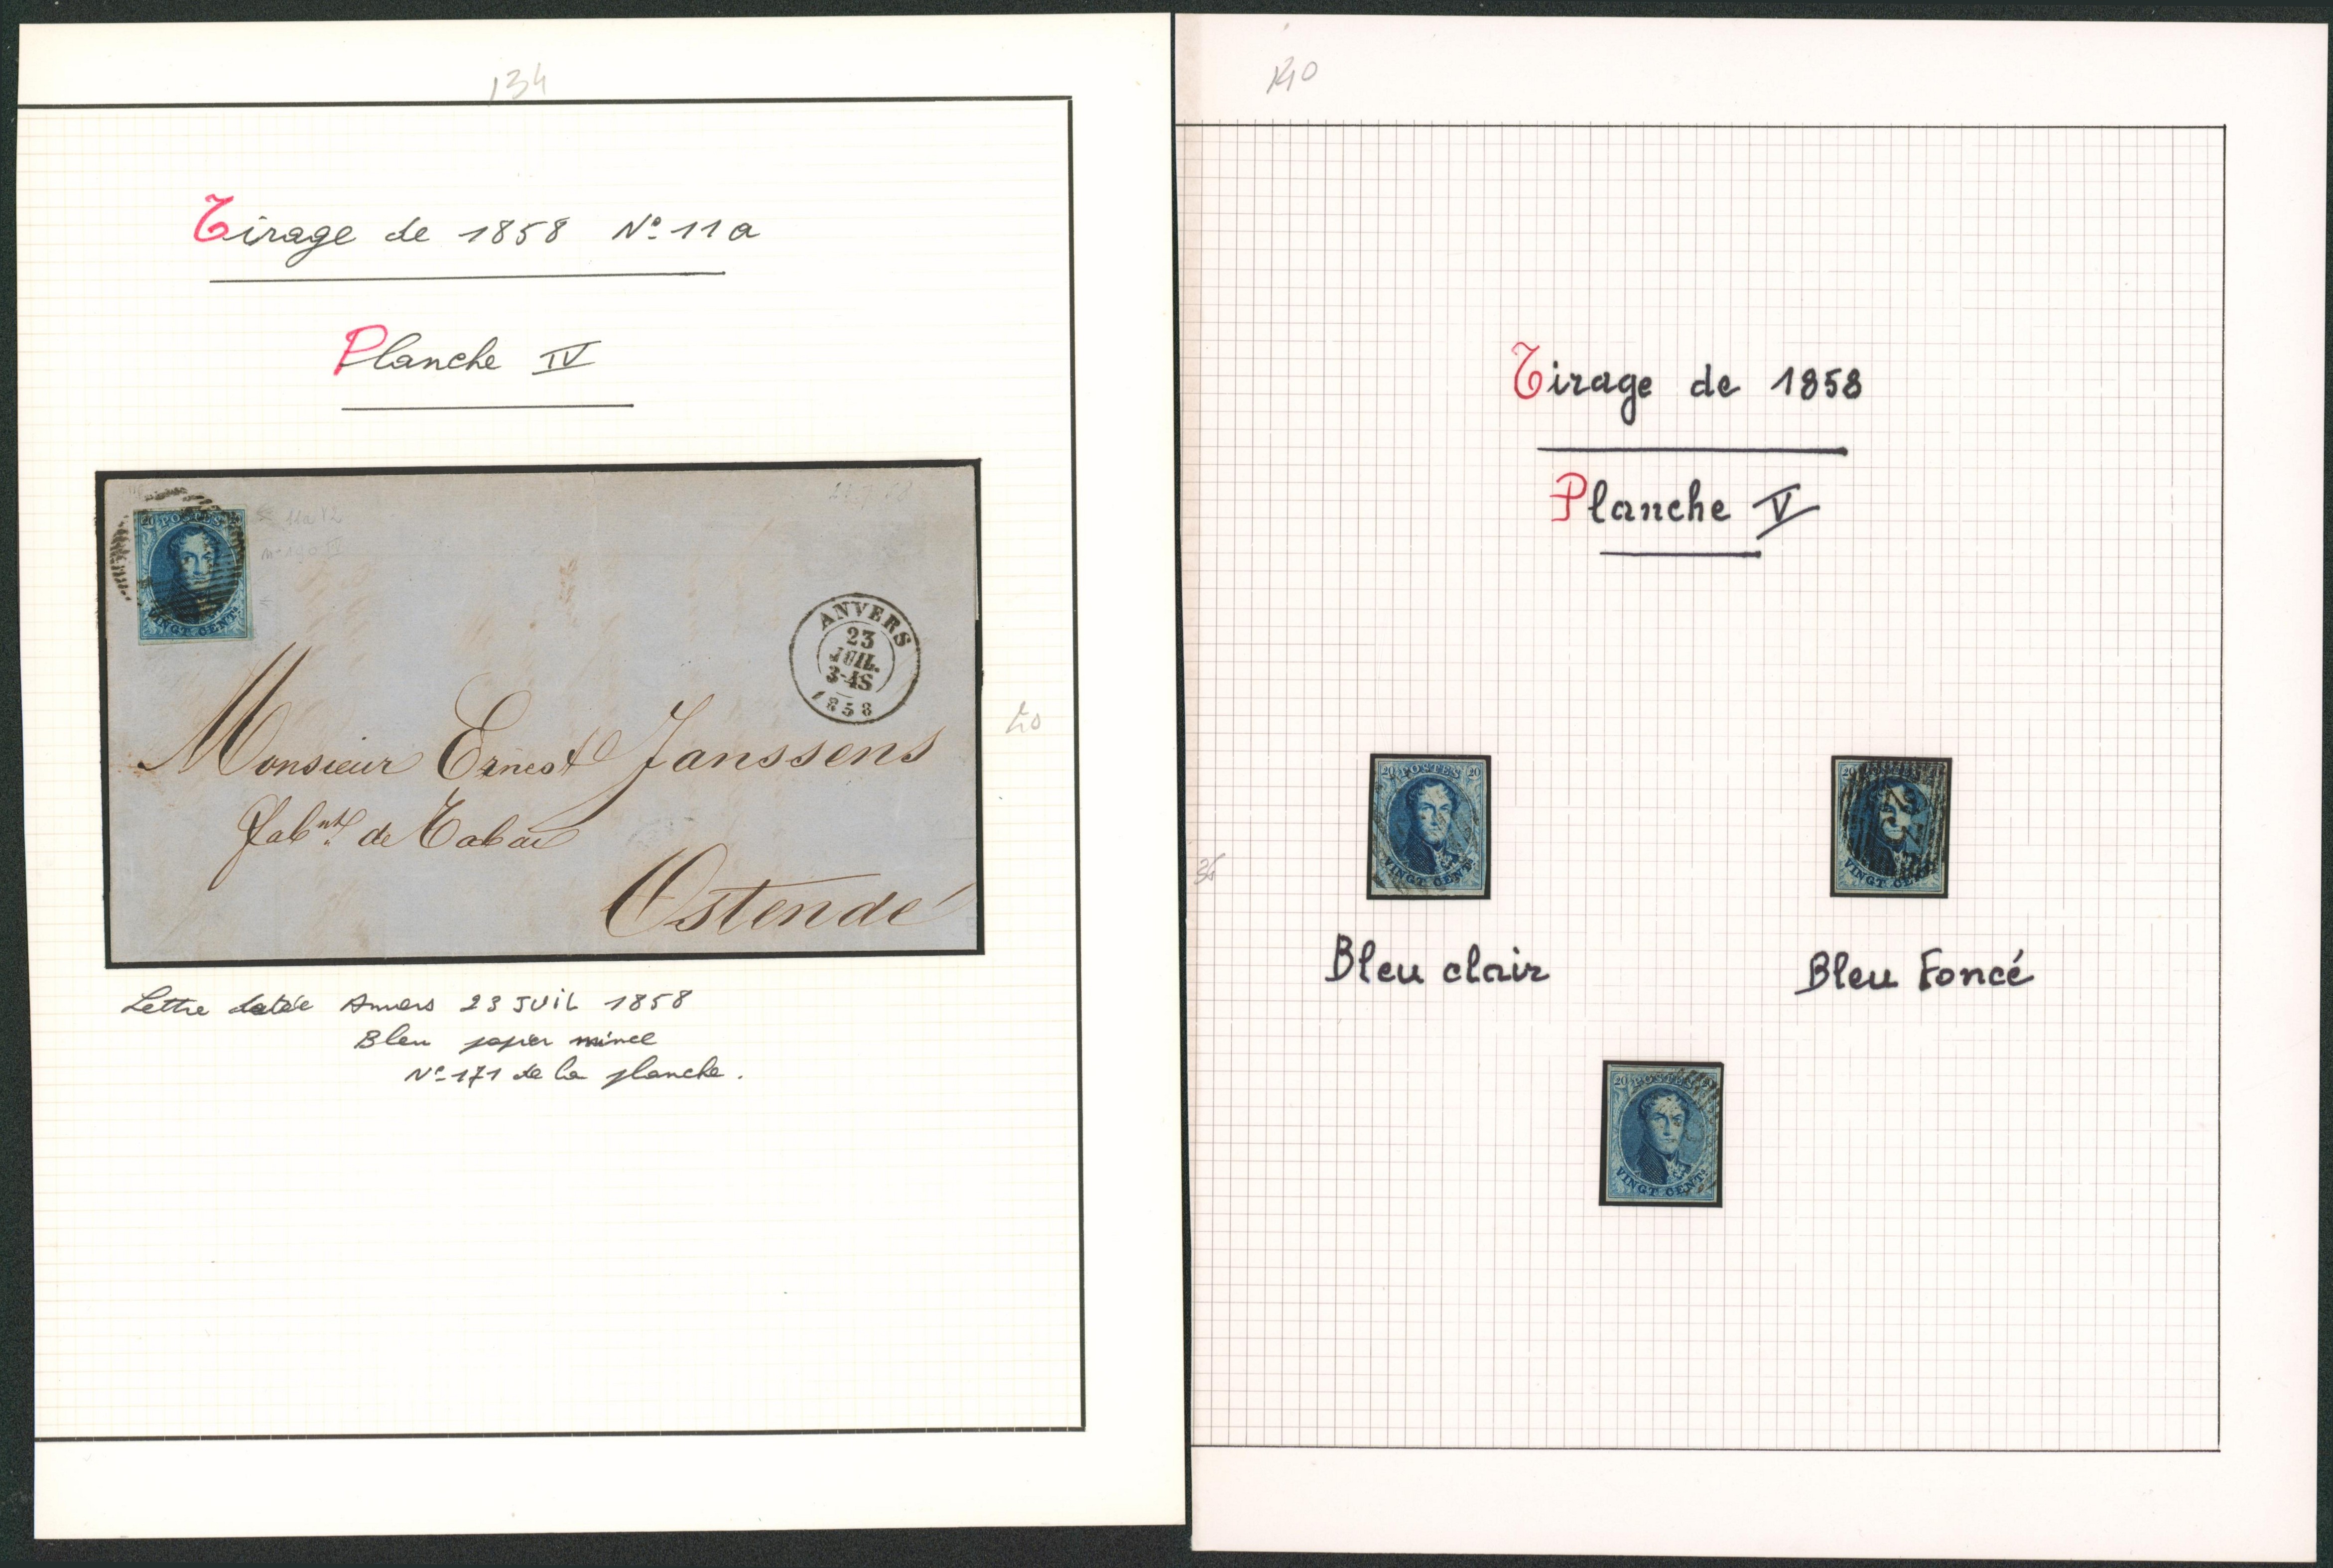 134
Tirage de 1858 N° 11a
Planche IV
20 POSTES
VINGT CENTS
11a V2
ANVERS
23
JUIL.
3-4S
1858
Monsieur Ernest Janssens
fabnt. de Tabac
Ostende
20
Lettre datée Anvers 23 JUIL 1858
Bleu papier mince
N° 171 de la planche.
140
Tirage de 1858
Planche V
20 POSTES 20
VINGT CENTS
20
VINGT CENTS
Bleu clair
Bleu Foncé
20 POSTES
VINGT CENTS